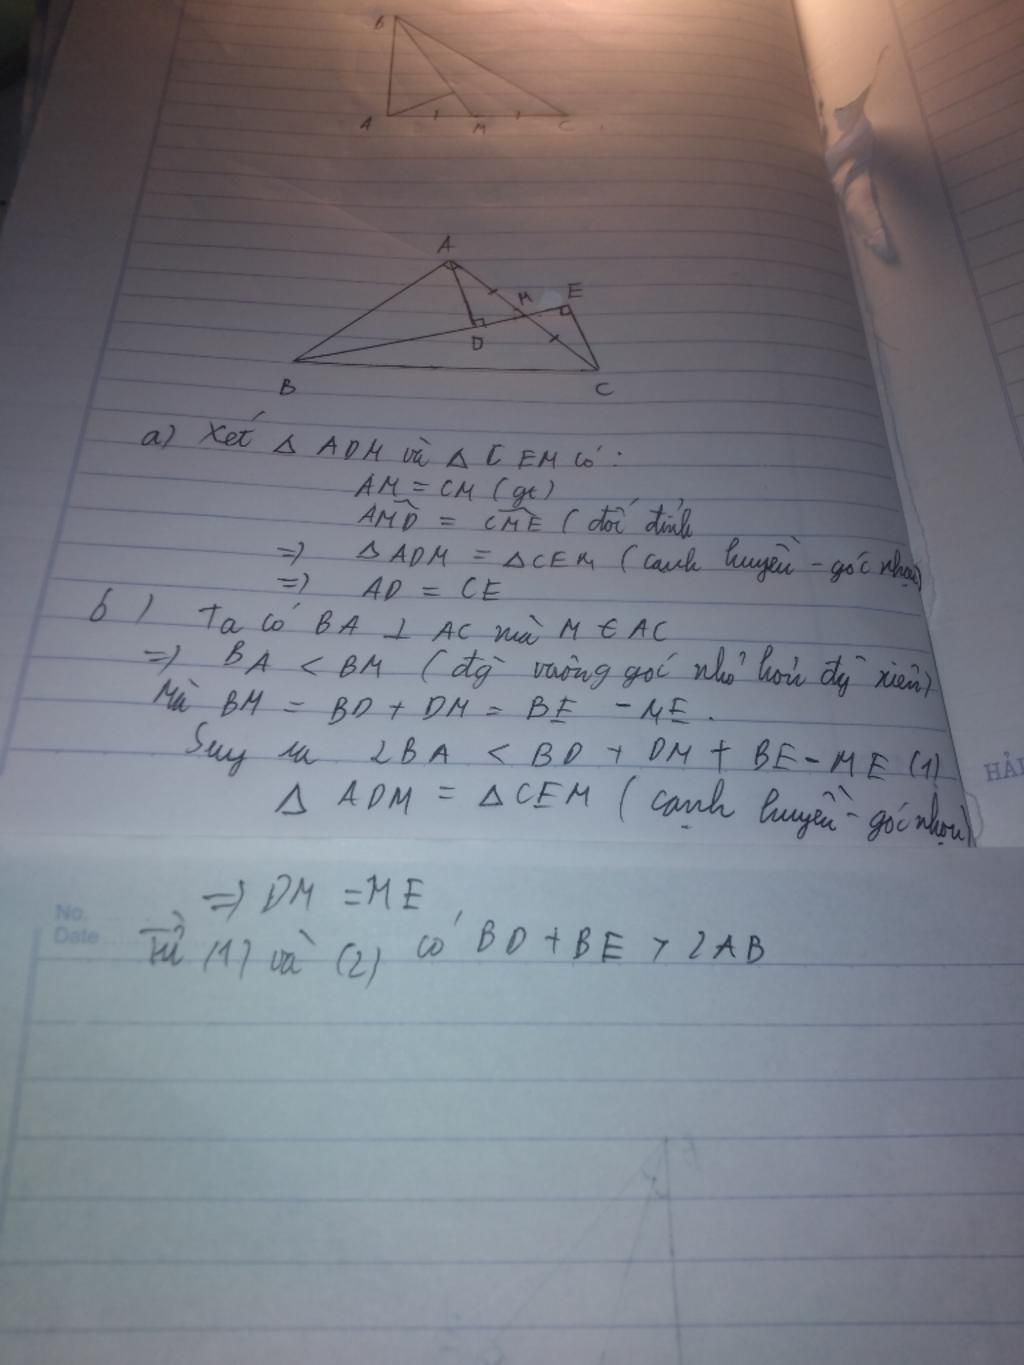 B
A M C
A
M E
D
B C
a) Xét Δ ADM và Δ CEM có :
AM = CM (gt)
AMD = CME ( đối đỉnh
=> Δ ADM = Δ CEM ( cạnh huyền - góc nhọn)
=> AD = CE
b ) Ta có BA ⊥ AC mà M ∈ AC
=> BA < BM ( đg vuông góc nhỏ hơn đg xiên)
Mà BM = BD + DM = BE - ME .
Suy ra 2BA < BD + DM + BE - ME (1)
HẢI
Δ ADM = Δ CEM ( cạnh huyền - góc nhọn)
=> DM = ME
No.
Date
Từ (1) và (2) có BD + BE > 2AB